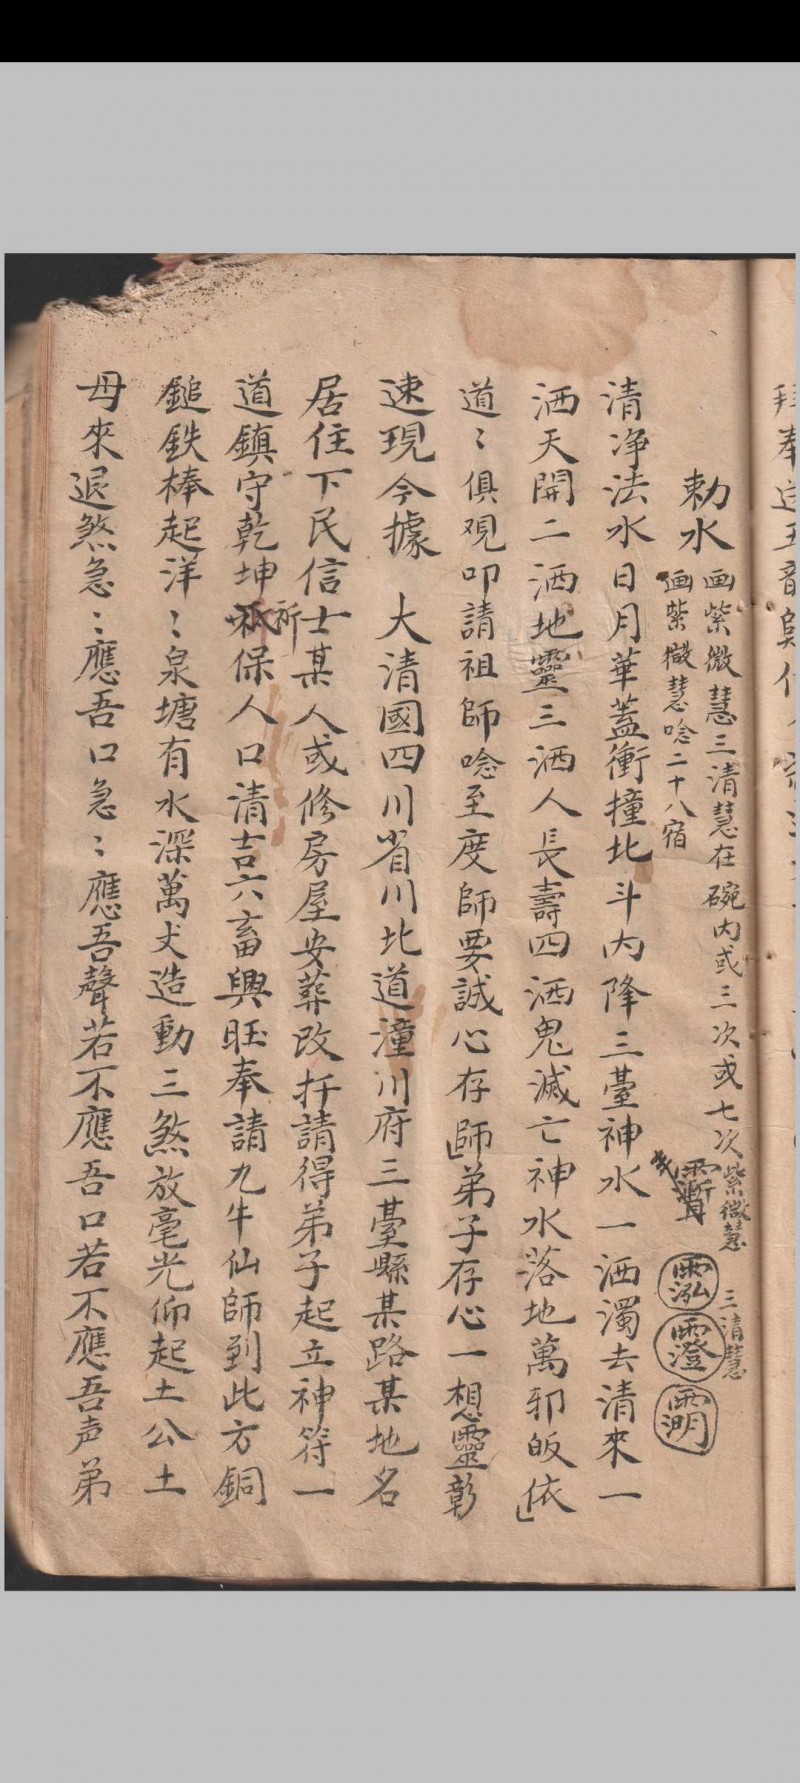 勅水
画紫微慧三清慧在碗内或三次或七次紫微慧 三清慧
画紫微慧唸二十八宿
清净法水日月華蓋衝撞北斗内降三臺神水一洒濁去清來一
洒天開二洒地靈三洒人長壽四洒鬼滅亡神水落地萬邪皈依
道〻俱观叩請祖師唸至度師要誠心存師弟子存心一想靈彰
速現今據 大清國四川省川北道潼川府三臺縣某路某地名
居住下民信士某人或修房屋安葬改扦請得弟子起立神符一
道鎮守乾坤祈保人口清吉六畜興旺奉請九牛仙師到此方銅
鎚鉄棒起洋〻泉塘有水深萬丈造動三煞放毫光仰起土公土
母來退煞急〻應吾口急〻應吾聲若不應吾口若不應吾声弟